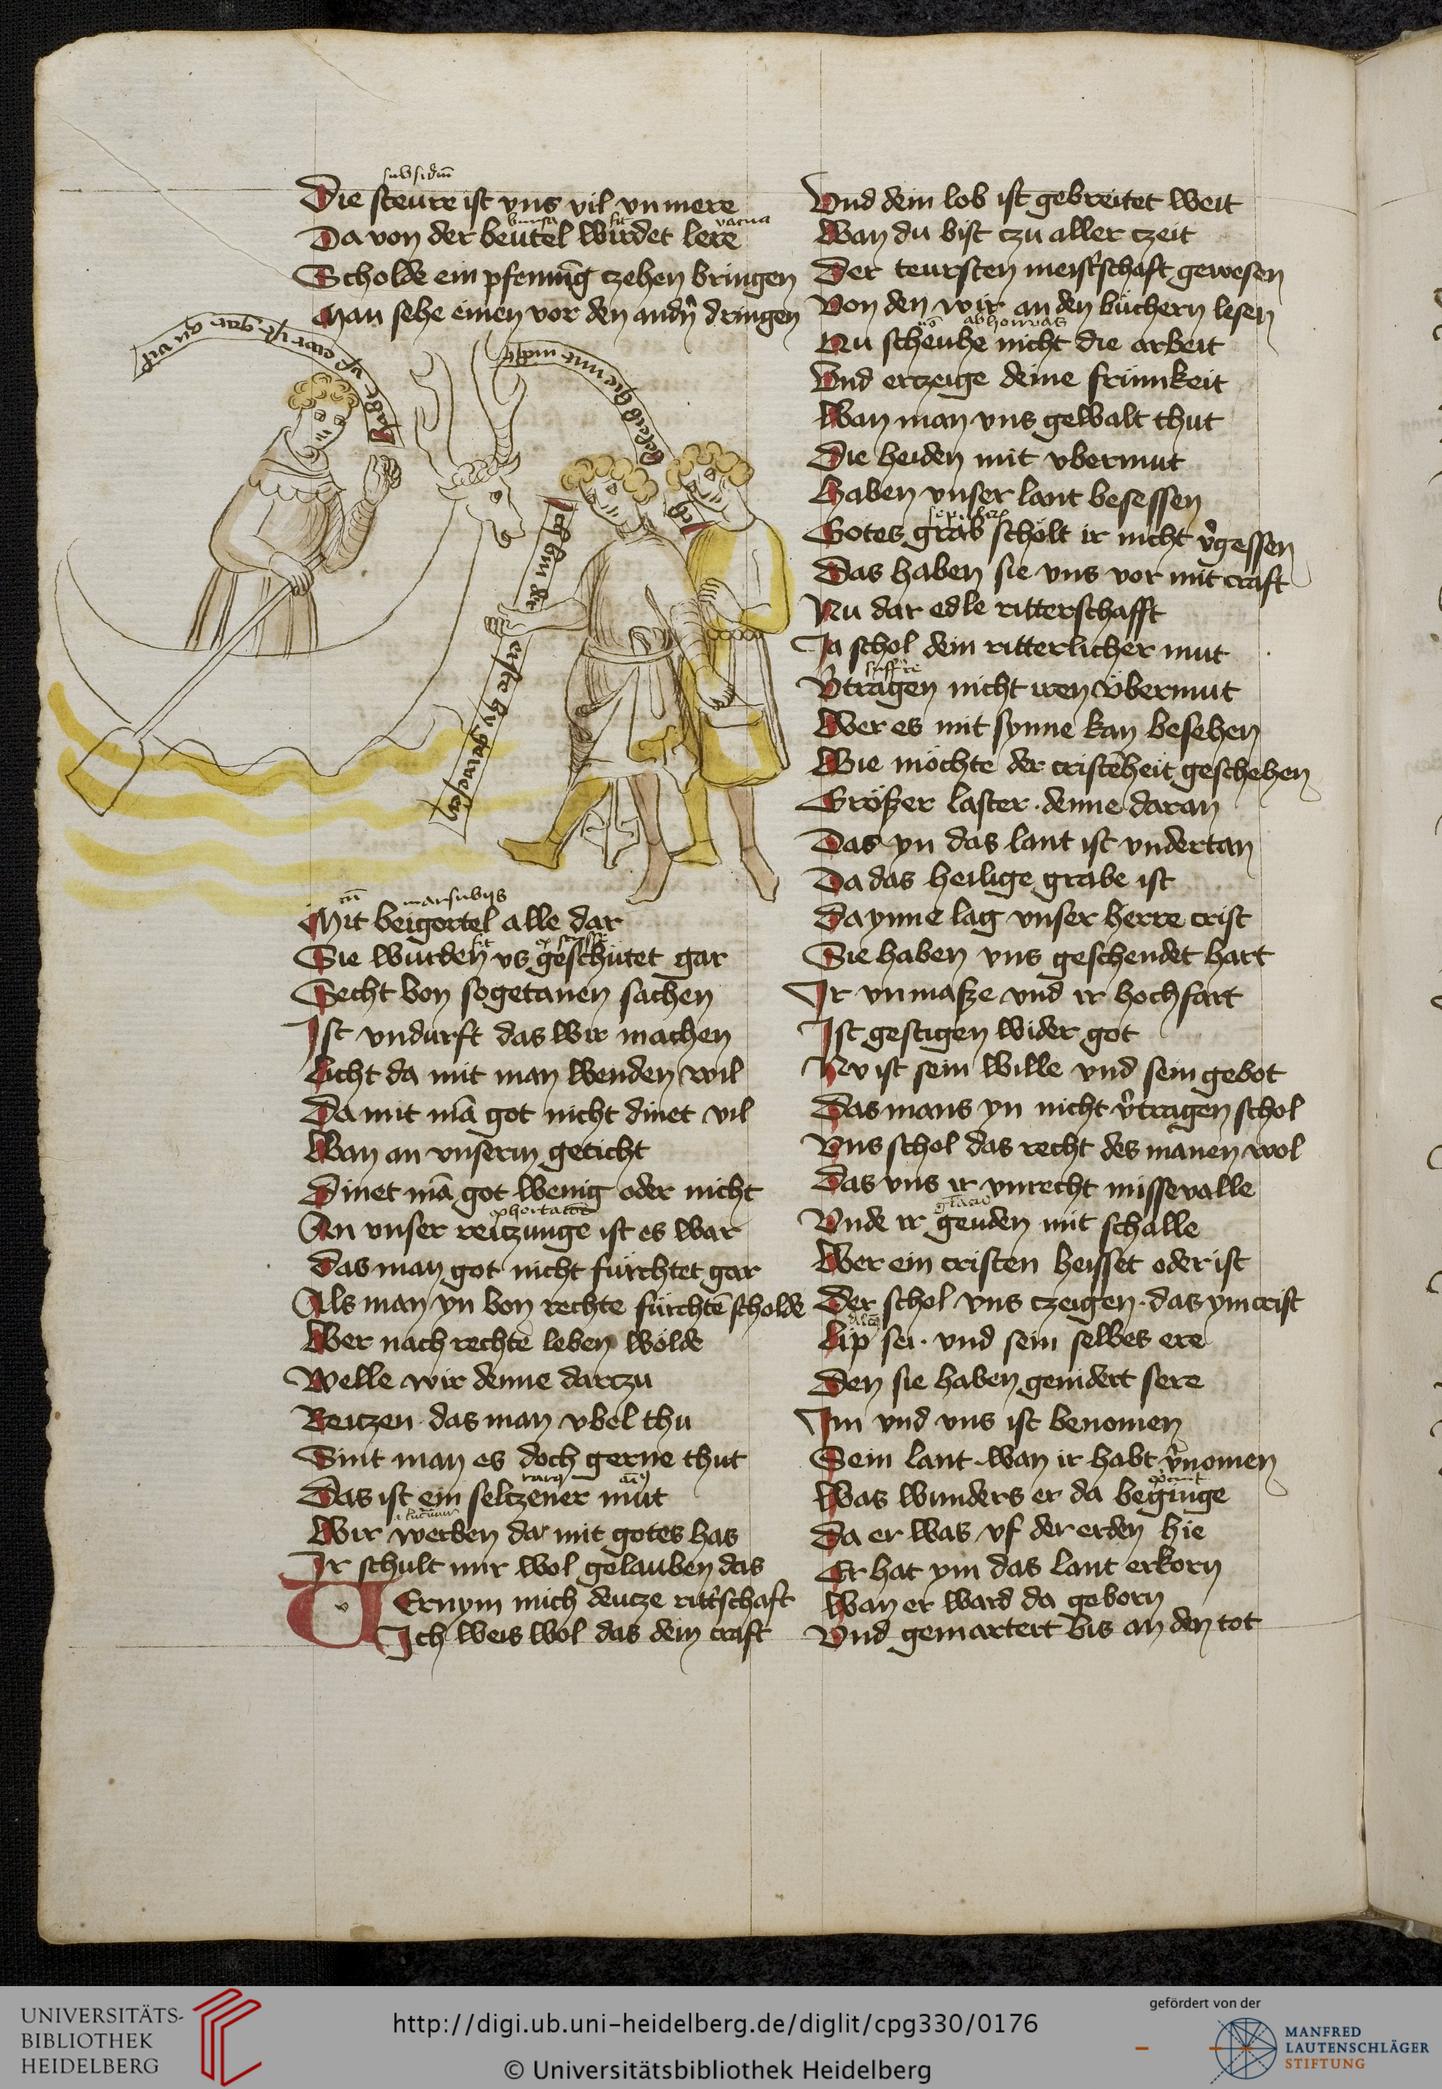 subsidiū
Die steure ist vns vil vnmere
bursa fit vacua
Da von der beutel wirdet lere
Scholde ein pfenning czehen bringen
Man sehe einen vor den andn̄ dringen
Ich bin der erste hy gewesen
Ich
cū marsubijs
Mit beigortel alle dar
Sie wurden vs geschutet gar
Secht von sogetanen sachen
Ist vndurft das wir machen
Licht da mit man wenden wil
Da mit mā got nicht dinet vil
Wan an vnserm geticht
Dinet mā got wenig oder nicht
An vnser reitzunge ist es war
Das man got nicht fürchtet gar
Als man yn von rechte fürchtē scholde
Wer nach rechte leben wolde
Welle wir denne darczu
Reitzen das man vbel thu
Sint man es doch gerne thut
Das ist ein seltzener mut
Wir werben dar mit gotes has
Ir schult mir wol gelauben das
VErnym mich deutze ritt'schaft
Ich weis wol das dein craft
Vnd dein lob ist gebreitet weit
Wan du bist czu aller czeit
Der teursten meist'schaft gewesen
Von den wir an den büchern lesen
Nu scheuhe nicht die arbeit
Vnd erczeige deine frümkeit
Wan man vns gewalt thut
Die heiden mit vbermut
Haben vnser lant besessen
Gotes grab scholt ir nicht v'gessen
Das haben sie vns vor mit craft
Nu dar edle ritterschafft
Ja schol dein ritterlicher mut
V'tragen nicht iren vbermut
Wer es mit synne kan besehen
Wie möchte der cristēheit geschehen
Größer laster denne daran
Das yn das lant ist vndertan
Da das heilige grabe ist
Da ynne lag vnser herre crist
Sie haben vns geschendet hart
Ir vnmaße vnd ir hochfart
Ist gestigen wider got
Nv ist sein wille vnd sein gebot
Das mans yn nicht v'tragen schol
Vns schol das recht des manen wol
Das vns ir vnrecht missevalle
Vnde ir geuden mit schalle
Wer ein cristen heisset oder ist
Der schol vns czeigen das ym crist
Lip sei vnd sein selbes ere
Den sie haben genidert sere
Im vnd vns ist benomen
Sein lant wan ir habt v'nomen
Was wunders er da beginge
Da er was vf der erden hie
Er hat ym das lant erkorn
Wan er ward da geborn
Vnd gemartert bis an den tot
UNIVERSITÄTS-
BIBLIOTHEK
HEIDELBERG
http://digi.ub.uni-heidelberg.de/diglit/cpg330/0176
© Universitätsbibliothek Heidelberg
gefördert von der
MANFRED
LAUTENSCHLÄGER
STIFTUNG